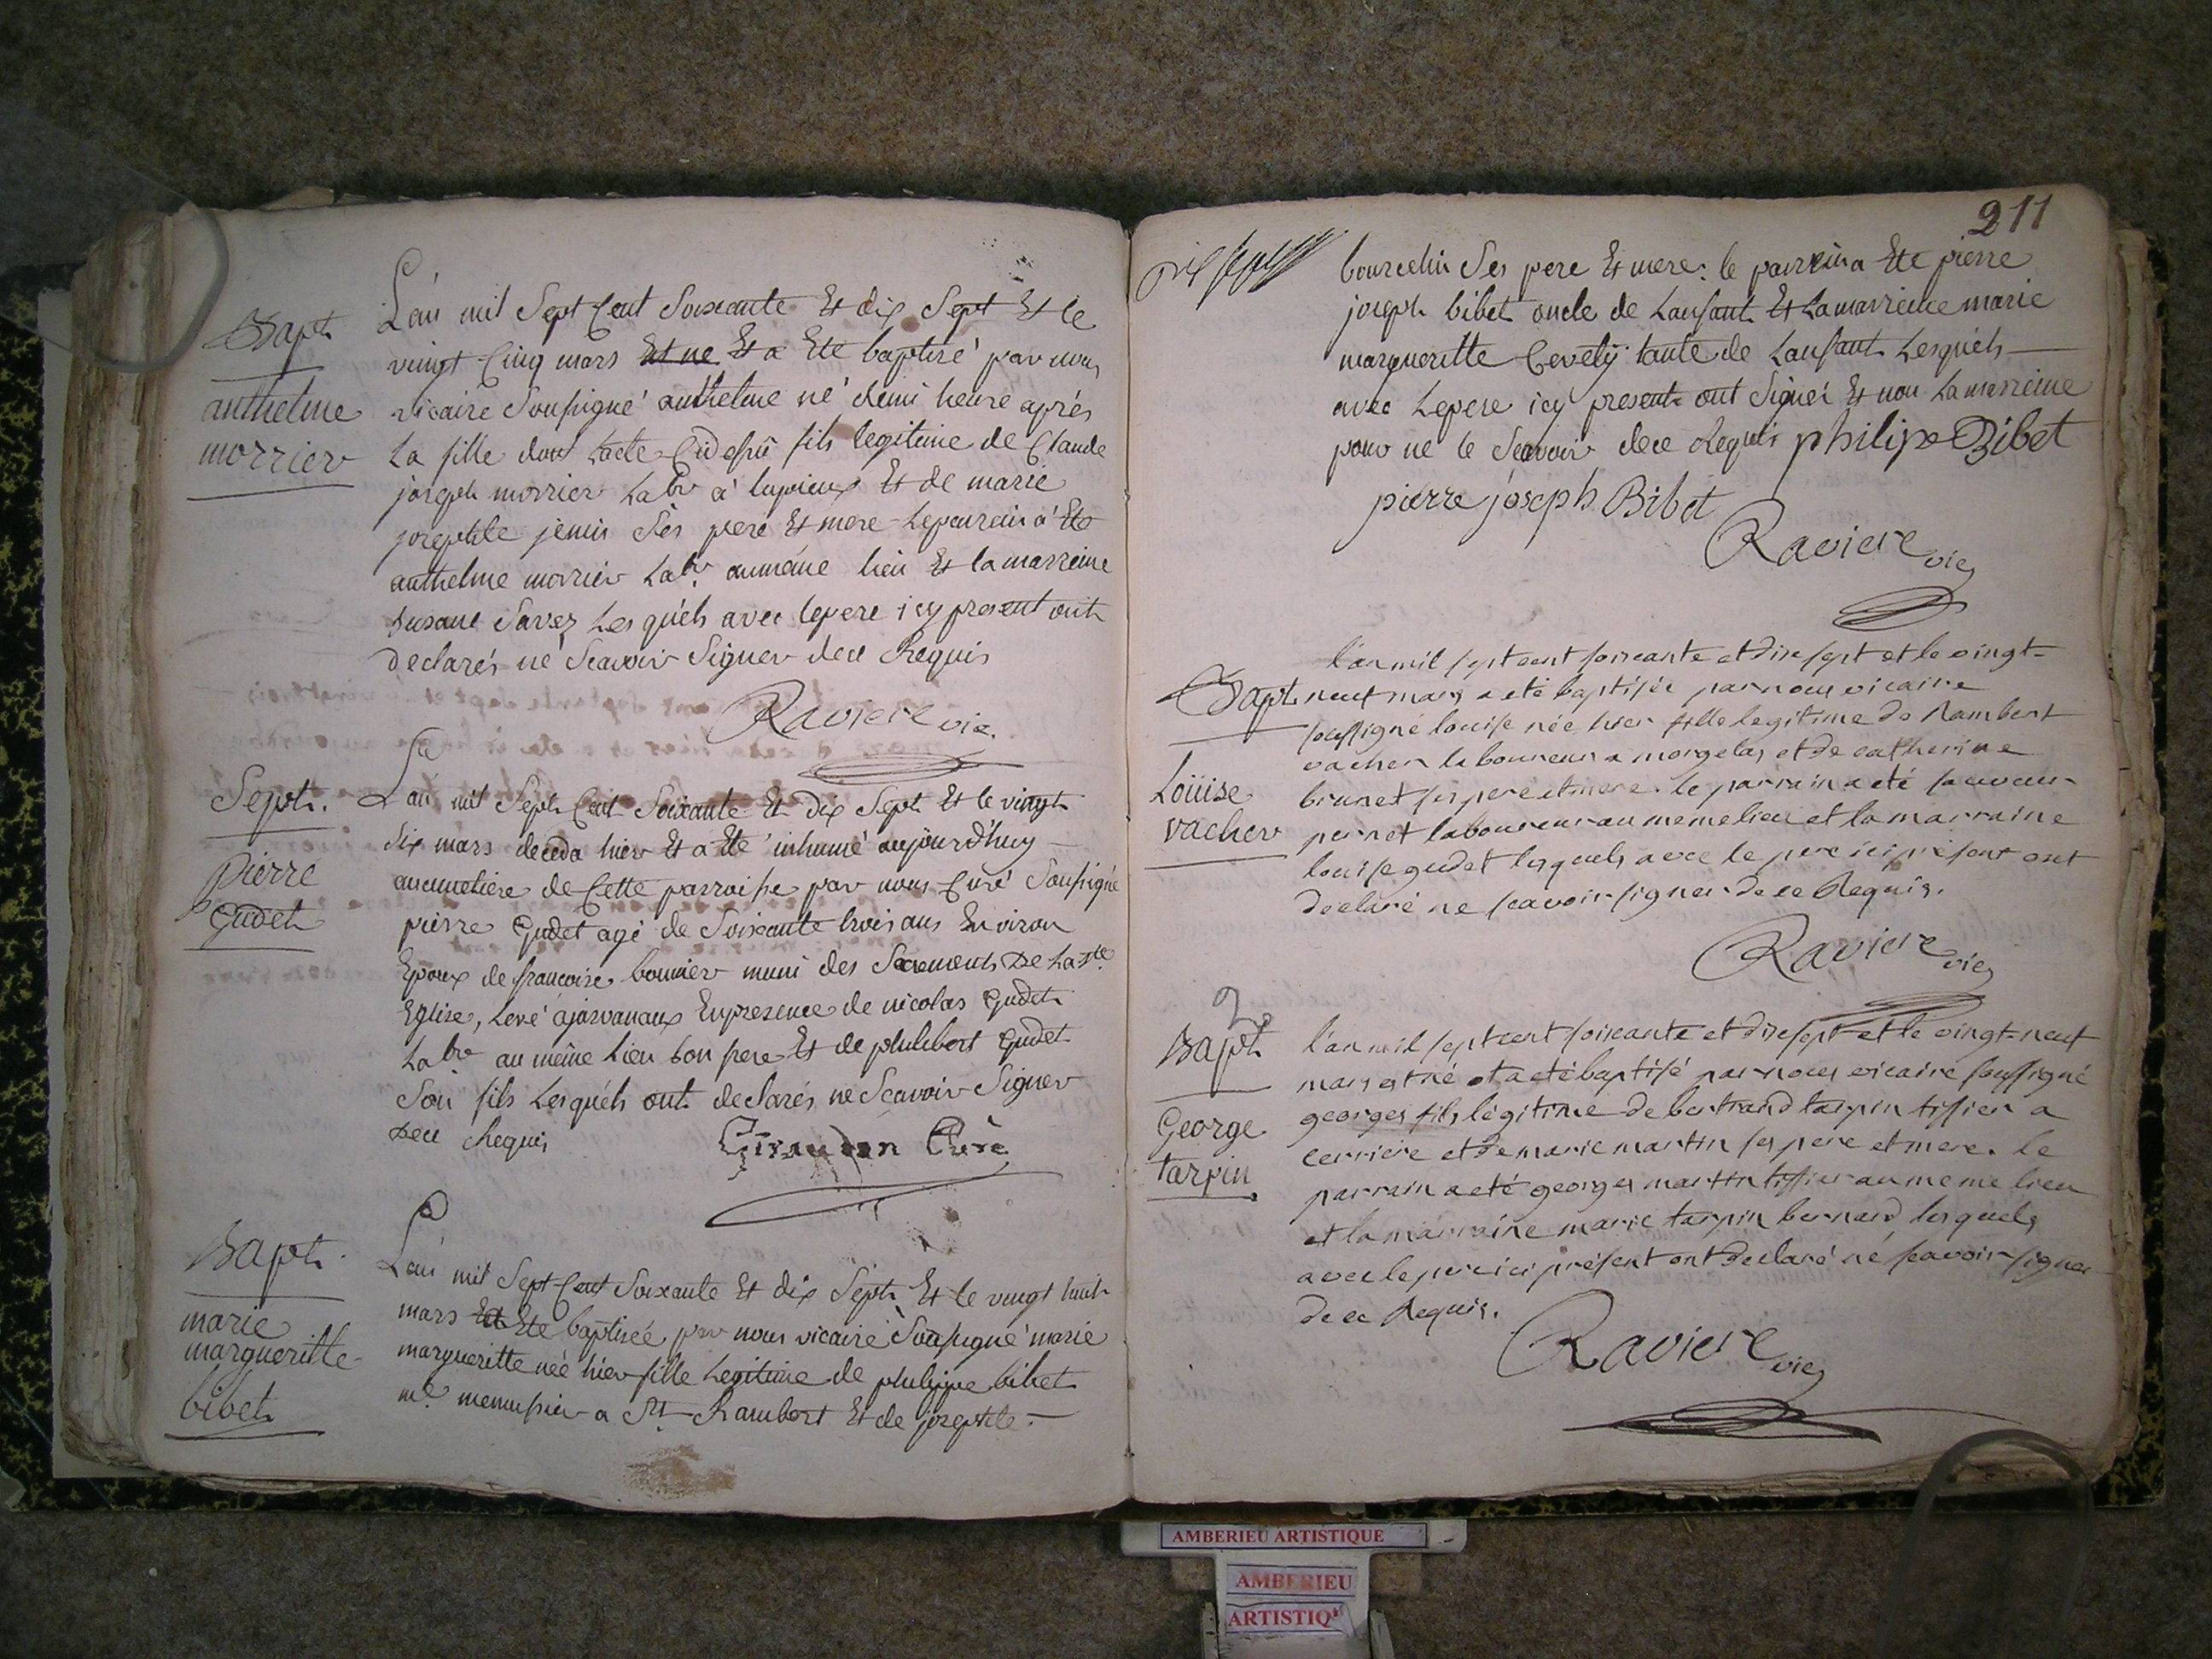 Bapt.
anthelme
morrier
L'an mil Sept Cent Soixante Et dix Sept Et le
vingt Cinq mars Est né Et a Ete baptisé par nous
vicaire Soussigné anthelme né demi heure aprés
La fille dont Lacte Cidessu fils legitime de Claude
joseph morrier Labr à lupieux Et de marie
josephte jenin Ses pere Et mere Leparrein a Ete
anthelme morrier Labr. aumême lieu Et la marreine
susane Savez Lesquéls avec lepere icy present ont
declarés ne Scavoir Signer dece Requis
Raviere vic.
Sept.
Pierre
Gudet
L'an mil Sept Cent Soixante Et Dix Sept Et le vingt
Six mars deceda hier Et a Eté inhumé aujourd'huy
aucimetiere de Cette parroisse par nous Curé Soussigné
pierre Gudet agé de Soixante trois ans Environ
Epoux de francoise bonnier muni des Sacrements De La Ste
Eglise, Levé ajarvanaux Enpresence de nicolas Gudet
Labr. au même Lieu Son frere Et de philibert Gudet
Son fils Lesquéls ont declarés ne Scavoir Signer
Dece Requis
Giraudon Curé
Bapt.
marie
margueritte
bibet
L'an mil Sept Cent Soixante Et dix Sept Et le vingt huit
mars Ete baptisée par nous vicaire Soussigné marie
margueritte née hier fille Legitime de philippe bibet
me. menuisier a St. Rambert Et de josephte
211
bourdin Ses pere Et mere. le parrein a Ete pierre
joseph bibet oncle de Lenfant Et La marreine marie
margueritte tante de Lenfant Lesquéls
avec Lepere icy present ont Signés Et non La marreine
pour ne le Scavoir dece Requis philipe Bibet
pierre joseph Bibet
Raviere vic
Bapt.
Loüise
vacher
l'an mil sept cent soixante et dix sept et le vingt-
neuf mars a eté baptisée par nous vicaire
soussigné louise née hier fille legitime de Rambert
vacher laboureur a morgelas et de catherine
brunet ses pere et mere. le parrain a eté sauveur
pernet laboureur au meme lieu et la marraine
louise gudet lesquels avec le pere ici présent ont
declaré ne scavoir signer de ce Requis.
Raviere vic
2
Bapt.
George
tarpin
l'an mil sept cent soixante et dix sept et le vingt-neuf
mars est né et a eté baptisé par nous vicaire soussigné
georges fils légitime de bertrand tarpin tissier a
serriere et de marie martin ses pere et mere. le
parrain a eté georges martin tissier au meme lieu
et la marraine marie tarpin bernard lesquels
avec le pere ici présent ont declaré né scavoir signer
de ce Requis.
Raviere vic
AMBERIEU ARTISTIQUE
AMBERIEU
ARTISTIQ